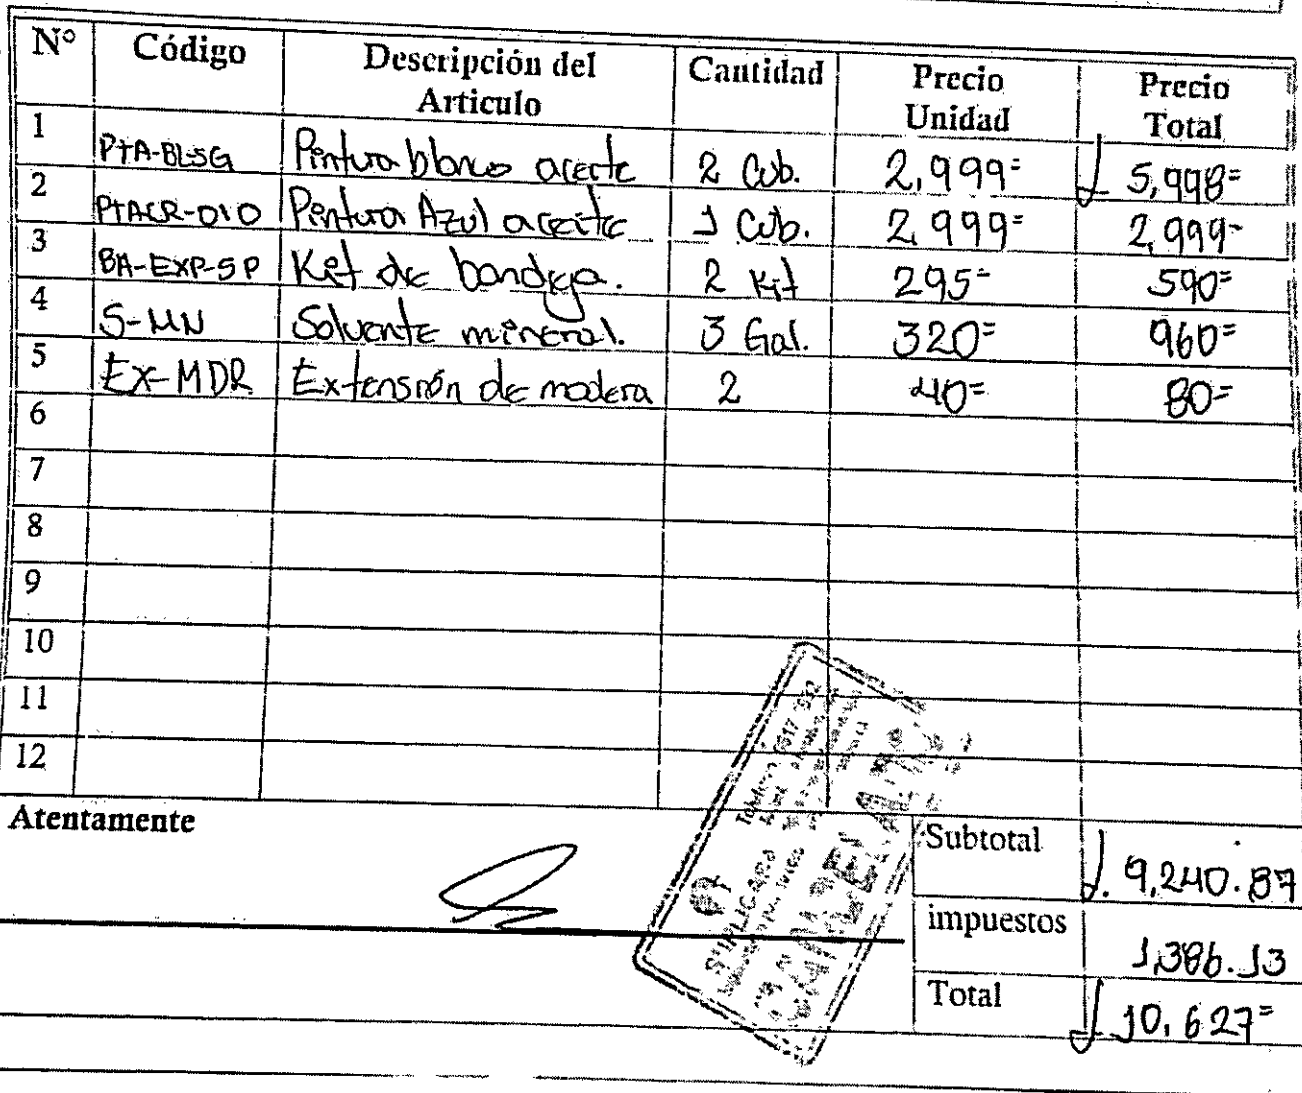 N° Código Descripción del Articulo Cantidad Precio Unidad Precio Total
1 PTA-BLSG Pintura blanco aceite 2 Cub. 2,999= L 5,998=
2 PTACR-010 Pintura Azul aceite 1 Cub. 2,999= 2,999=
3 BA-EXP-5P Kit de bandeja. 2 Kit 295= 590=
4 S-MN Solvente mineral. 3 Gal. 320= 960=
5 EX-MDR Extensión de madera 2 40= 80=
6
7
8
9
10
11
12
Atentamente
Subtotal L. 9,240.87
impuestos 1,386.13
Total L 10,627=